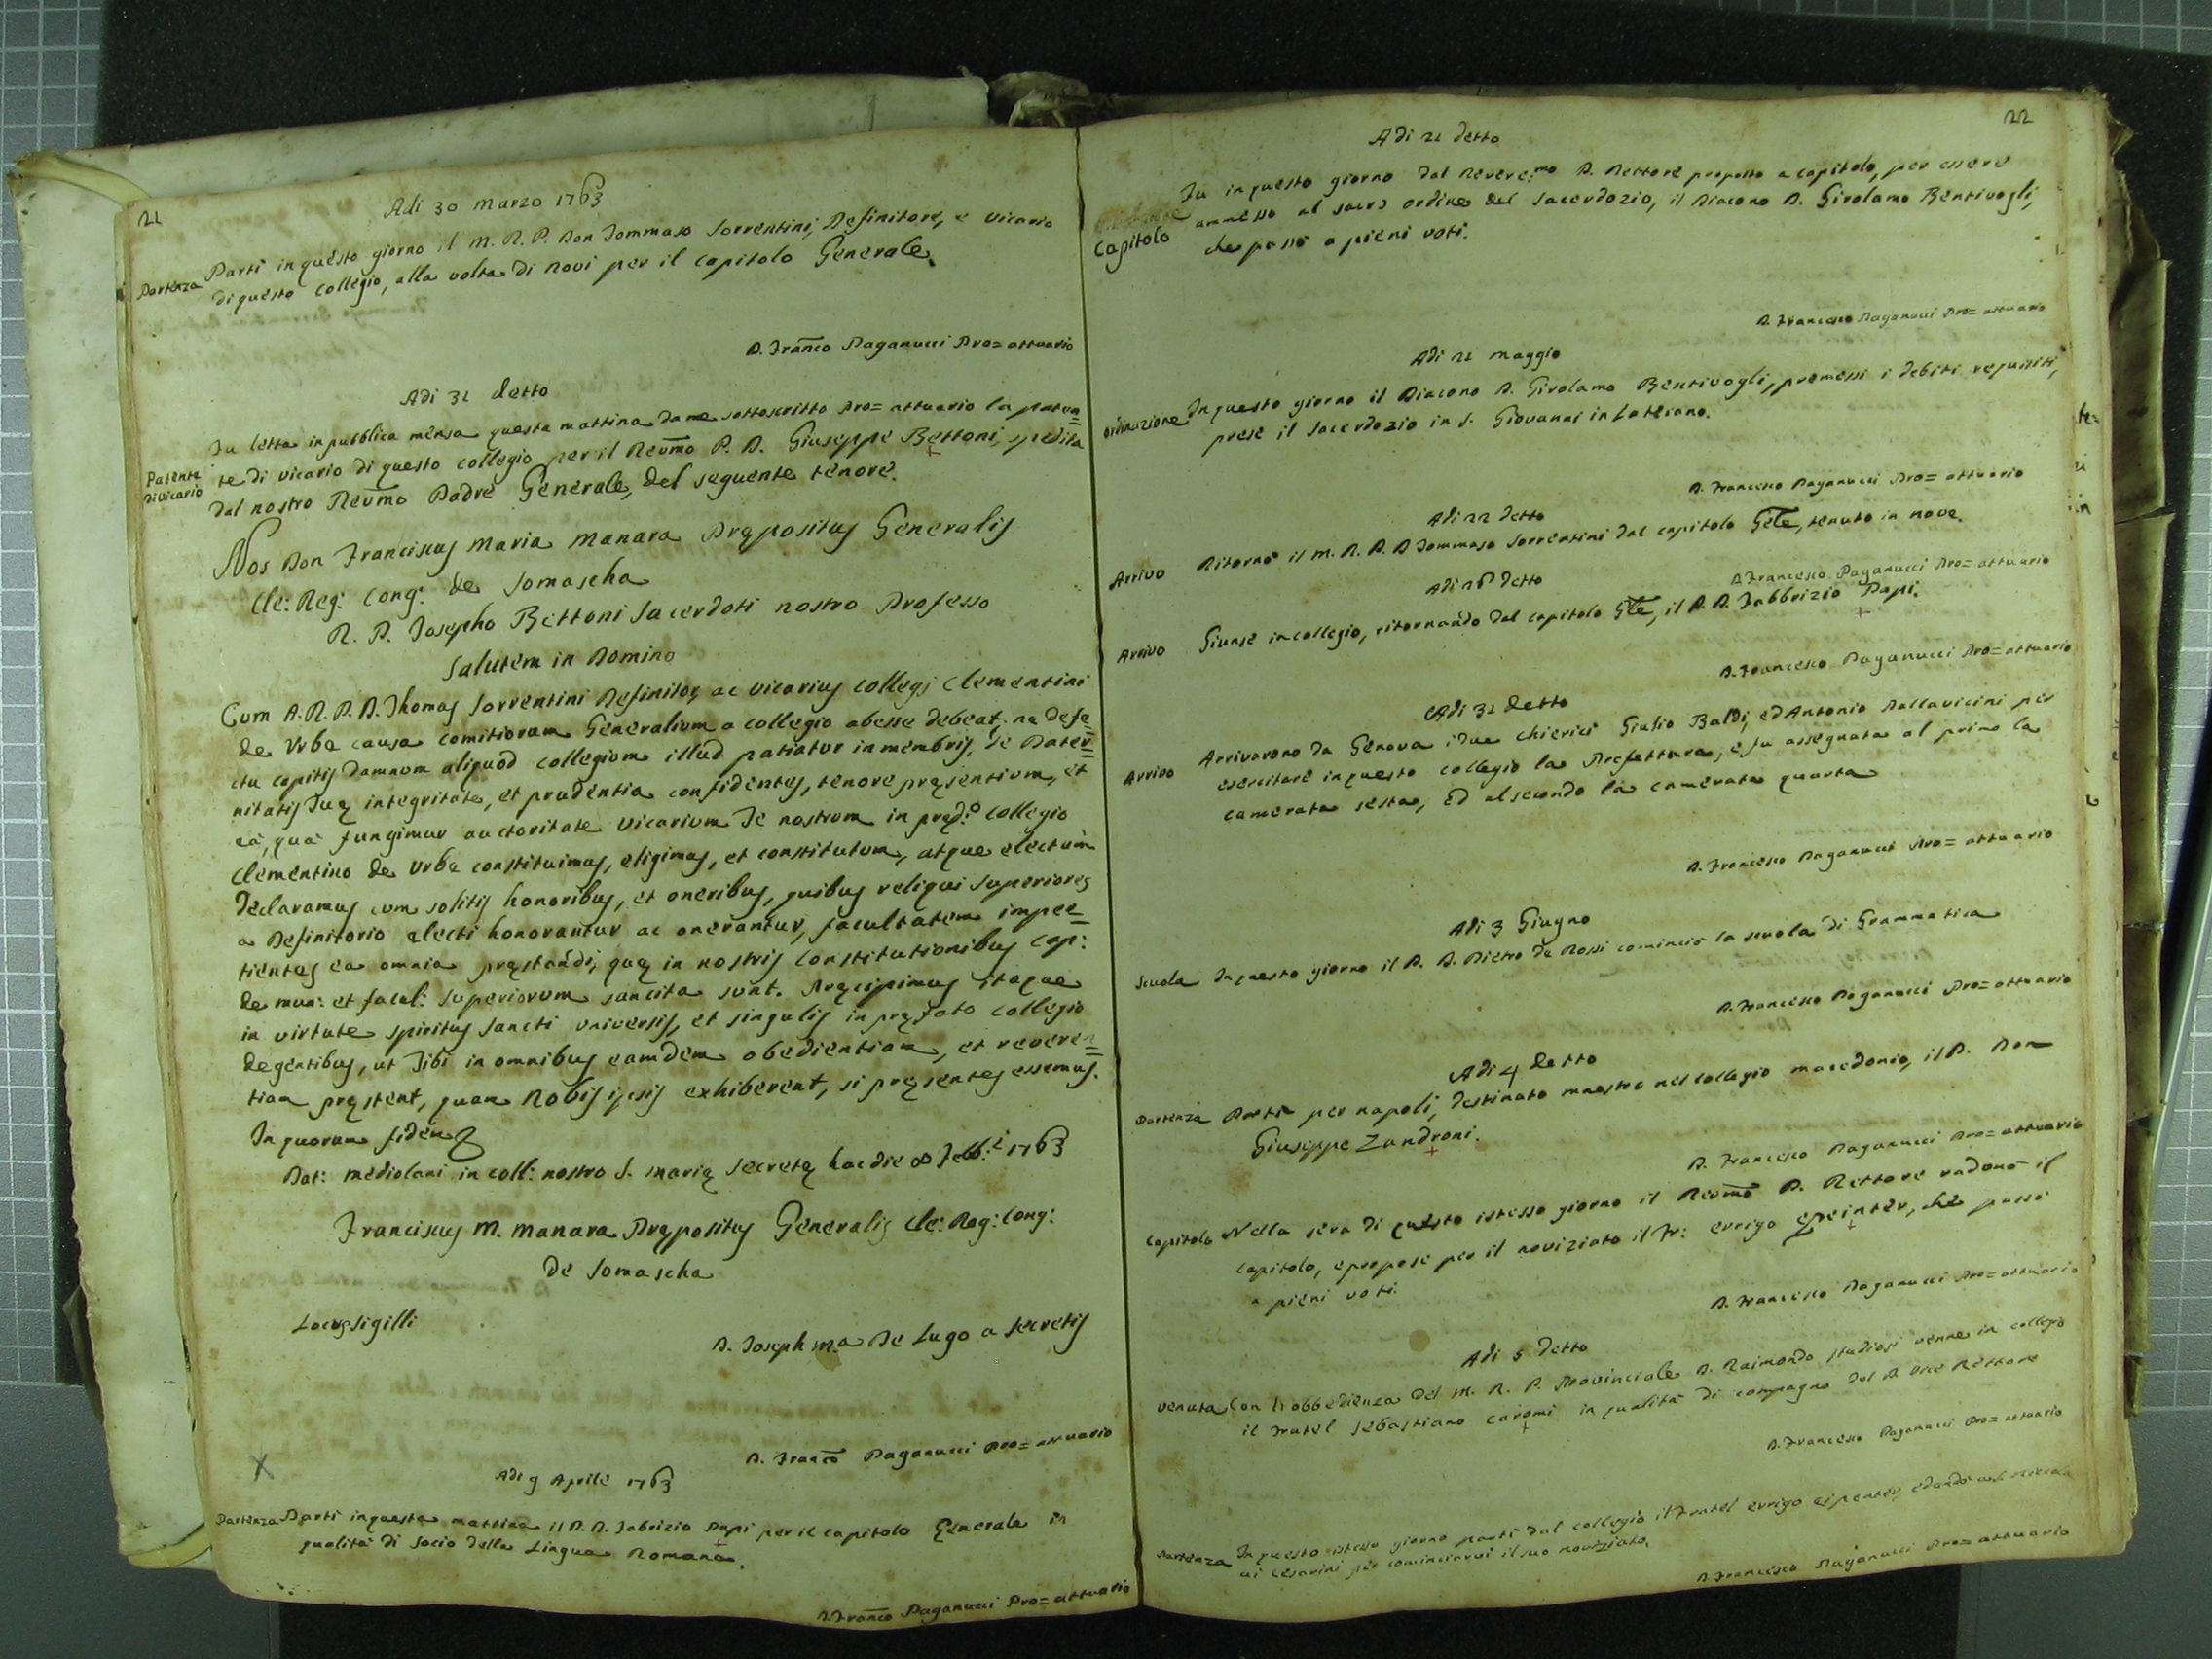 21
Adi 30 Marzo 1763
Partenza
Partì in questo giorno il M. R. P. Don Tommaso Sorrentini, Definitore, e Vicario
di questo Collegio, alla volta di Novi per il Capitolo Generale.
D. Franco Paganucci Pro=attuario
Adi 31 detto
Patente di vicario
Fu letta in pubblica mensa questa mattina da me sottoscritto Pro=attuario la paten=
te di vicario di questo collegio per il Reumo P. D. Giuseppe Bettoni, spedita
dal nostro Reumo Padre Generale, del seguente tenore.
Nos Don Franciscus Maria Manara Prępositus Generalis
Cle: Reg: Cong: de Somascha
R. P. Josepho Bettoni Sacerdoti nostro Professo
Salutem in Domino
Cum A. R. P. D. Thomas Sorrentini Definitor, ac vicarius collegj Clementini
de Urbe causa comitiorum Generalium a collegio abesse debeat, ne defe=
ctu capitis damnum aliquod collegium illud patiatur in membris, de Pater=
nitatis Tuę integritate, et prudentia confidentes, tenore pręsentium, et
eà, quà fungimur auctoritate Vicarium Te nostrum in pręd:o collegio
Clementino de Urbe constituimus, eligimus, et constitutum, atque electum
declaramus cum solitis honoribus, et oneribus, quibus reliqui superiores
a Definitorio electi honorantur ac onerantur, facultatem imper=
tientes ea omnia pręstandi, quę in nostris constitutionibus cap:
de mun: et facul: superiorum sancita sunt. Pręcipimus itaque
in virtute spiritus sancti universis, et singulis in pręfato collegio
degentibus, ut Tibi in omnibus eamdem obedientiam, et reveren=
tiam pręstent, quam Nobis ipsis exhiberent, si pręsentes essemus.
In quorum fidem
Dat: Mediolani in coll: nostro S. Marię Secretę hac die 8 Febb:i 1763
Franciscus M. Manara Prępositus Generalis Cle: Reg: Cong:
de Somascha
Locus sigilli
D. Joseph M.a De Lugo a secretis
D. Franco Paganucci Pro=attuario
X
Adi 9 Aprile 1763
Partenza
Partì in questa mattina il P. D. Fabrizio Papi per il capitolo Generale in
qualità di socio della Lingua Romana.
D. Franco Paganucci Pro=attuario
22
Adi 21 detto
Capitolo
Fu in questo giorno dal Revere:mo P. Rettore proposto a capitolo, per essere
ammesso al sacro ordine del sacerdozio, il Diacono D. Girolamo Bentivogli,
che passò a pieni voti.
D. Francesco Paganucci Pro=attuario
Adi 21 maggio
ordinazione
In questo giorno il Diacono D. Girolamo Bentivogli, premessi i debiti requisiti,
prese il sacerdozio in S. Giovanni in Laterano.
D. Francesco Paganucci Pro=attuario
Adi 22 detto
Arrivo
Ritornò il M. R. P. D. Tommaso Sorrentini dal capitolo Gñle, tenuto in Nove.
D. Francesco Paganucci Pro=attuario
Adi 26 detto
Arrivo
Giunse in collegio, ritornando dal capitolo Gñle, il P. D. Fabbrizio Papi.
D. Francesco Paganucci Pro=attuario
Adi 31 detto
Arrivo
Arrivarono da Genova i due chierici Giulio Baldi, ed Antonio Pallavicini per
esercitare in questo collegio la Prefettura, e fu assegnata al primo la
camerata sesta, ed al secondo la camerata quarta
D. Francesco Paganucci Pro=attuario
Adi 3 Giugno
Scuola
In questo giorno il P. D. Pietro de Rossi cominciò la scuola di Grammatica
D. Francesco Paganucci Pro=attuario
Adi 4 detto
Partenza
Partì per napoli, destinato maestro nel collegio macedonio, il P. Don
Giuseppe Zandroni.
D. Francesco Paganucci Pro=attuario
Capitolo
Nella sera di questo istesso giorno il Reumo P. Rettore radunò il
capitolo, e propose per il noviziato il Fr: errigo epeinter, che passò
a pieni voti.
D. Francesco Paganucci Pro=attuario
Adi 5 detto
venuta
Con l'obbedienza del M. R. P. Provinciale D. Raimondo studiosi venne in collegio
il Fratel Sebastiano Caromi in qualità di compagno del P. Vice Rettore
D. Francesco Paganucci Pro=attuario
Partenza
In questo istesso giorno partì dal collegio il Fratel errigo eipenter, andando a S. Nicola
ai Cesarini per cominciarvi il suo noviziato.
D. Francesco Paganucci Pro=attuario